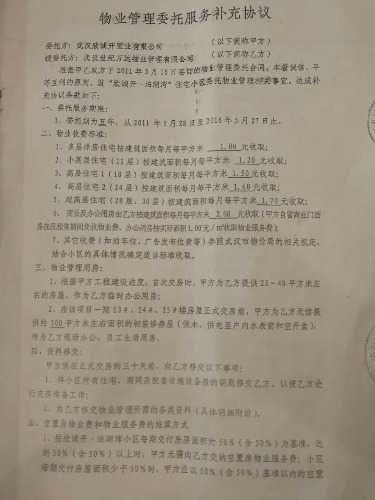 物业管理委托服务补充协议
委托方：武汉欣诚开置业有限公司 （以下简称甲方）
受委托方：武汉世纪万运物业管理有限公司 （以下简称乙方）
根据甲乙双方于2011年3月15日签订的物业管理委托合同，本着诚信、平
等互利的原则，就“欣诚开·运湖湾”住宅小区委托物业管理相关事宜，达成补
充协议条款如下：
一、委托服务期限：
1、委托期为五年，从2011年5月28日至2016年5月27日止。
二、物业收费标准：
1、多层洋房住宅按建筑面积每月每平方米 1.00 元收取；
2、小高层住宅（11层）按建筑面积每月每平方米 1.20 元收取；
3、高层住宅1（18层）按建筑面积每月每平方米 1.50 元收取；
4、高层住宅2（24层）按建筑面积每月每平方米 1.60 元收取；
5、超高层住宅（28层、30层）按建筑面积每月每平方米 1.70 元收取；
6、商业及办公用房由乙方按建筑面积每月每平方米 2.60 元收取（甲方自留商业门面
房在招租来期间免收物业费，办公用房按实际面积1.00元/㎡收取物业服务费）；
7、其它收费（如泊车位、广告发布位费等）参照武汉市物价局的相关规定，
结合小区的具体情况确定适当标准收取。
三、物业管理用房：
1、根据甲方工程建设进度，首次交房时，甲方为乙方提供25—40平方米左
右的房屋，作为乙方临时办公用房；
2、应该项目一期13#、24#、25#楼房屋正式交房前，甲方为乙方无偿提
供约 100 平方米左右面积的初装修房屋（供水、供电至户内水表前和空开盒），
作为乙方现场办公、员工生活用房。
四、资料移交：
甲方须在正式交房的三十天前，向乙方移交以下事项：
1、将小区所有住宅、商网及配套设施设备房的钥匙移交乙方，以便乙方进
行交房准备工作；
1、为乙方移交物业管理所需的各类资料（具体明细附后）。
五、空置房物业费和物业服务费的结算方式
1、按欣诚开·运湖湾小区每期交付房屋面积的50%（含50%）为基准，达
到50%（含50%）以上时，甲方无需向乙方交纳空置房物业服务费；小区
每期交付房屋面积少于50%时，甲方应以50%（含50%）基准以内的空置